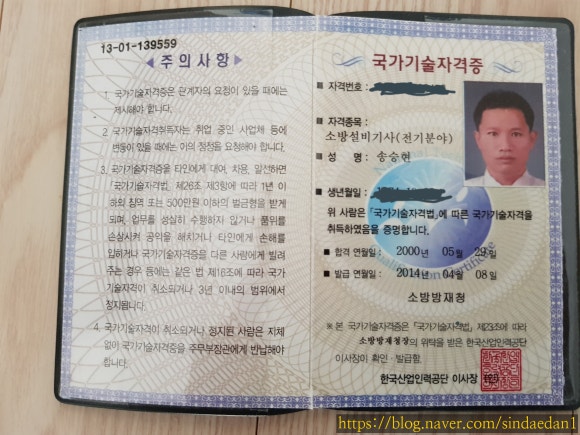 13-01-139559
◀ 주의사항 ▶
1. 국가기술자격증은 관계자의 요청이 있을 때에는
제시해야 합니다.
2. 국가기술자격취득자는 취업 중인 사업체 등에
변동이 있을 때에는 이의 정정을 요청해야 합니다.
3. 국가기술자격증을 타인에게 대여, 차용, 알선하면
「국가기술자격법」 제26조 제3항에 따라 1년 이
하의 징역 또는 500만원 이하의 벌금형을 받게
되며, 업무를 성실히 수행하지 않거나 품위를
손상시켜 공익을 해치거나 타인에게 손해를
입히거나 국가기술자격증을 다른 사람에게 빌려
주는 경우 등에는 같은 법 제16조에 따라 국가
기술자격이 취소되거나 3년 이내의 범위에서
정지됩니다.
4. 국가기술자격이 취소되거나 정지된 사람은 지체
없이 국가기술자격증을 주무부장관에게 반납해야
합니다.
국가기술자격증
■ 자격번호 :
■ 자격종목 :
소방설비기사(전기분야)
■ 성 명 : 송승현
■ 생년월일 :
위 사람은 「국가기술자격법」에 따른 국가기술자격을
취득하였음을 증명합니다.
■ 합격 연월일 : 2000년 05월 29일
■ 발급 연월일 : 2014년 04월 08일
소방방재청
※ 본 국가기술자격증은 「국가기술자격법」 제23조에 따라
소방방재청장의 위탁을 받은 한국산업인력공단
이사장이 확인·발급함.
한국산업인력공단 이사장
https://blog.naver.com/sindaedan1